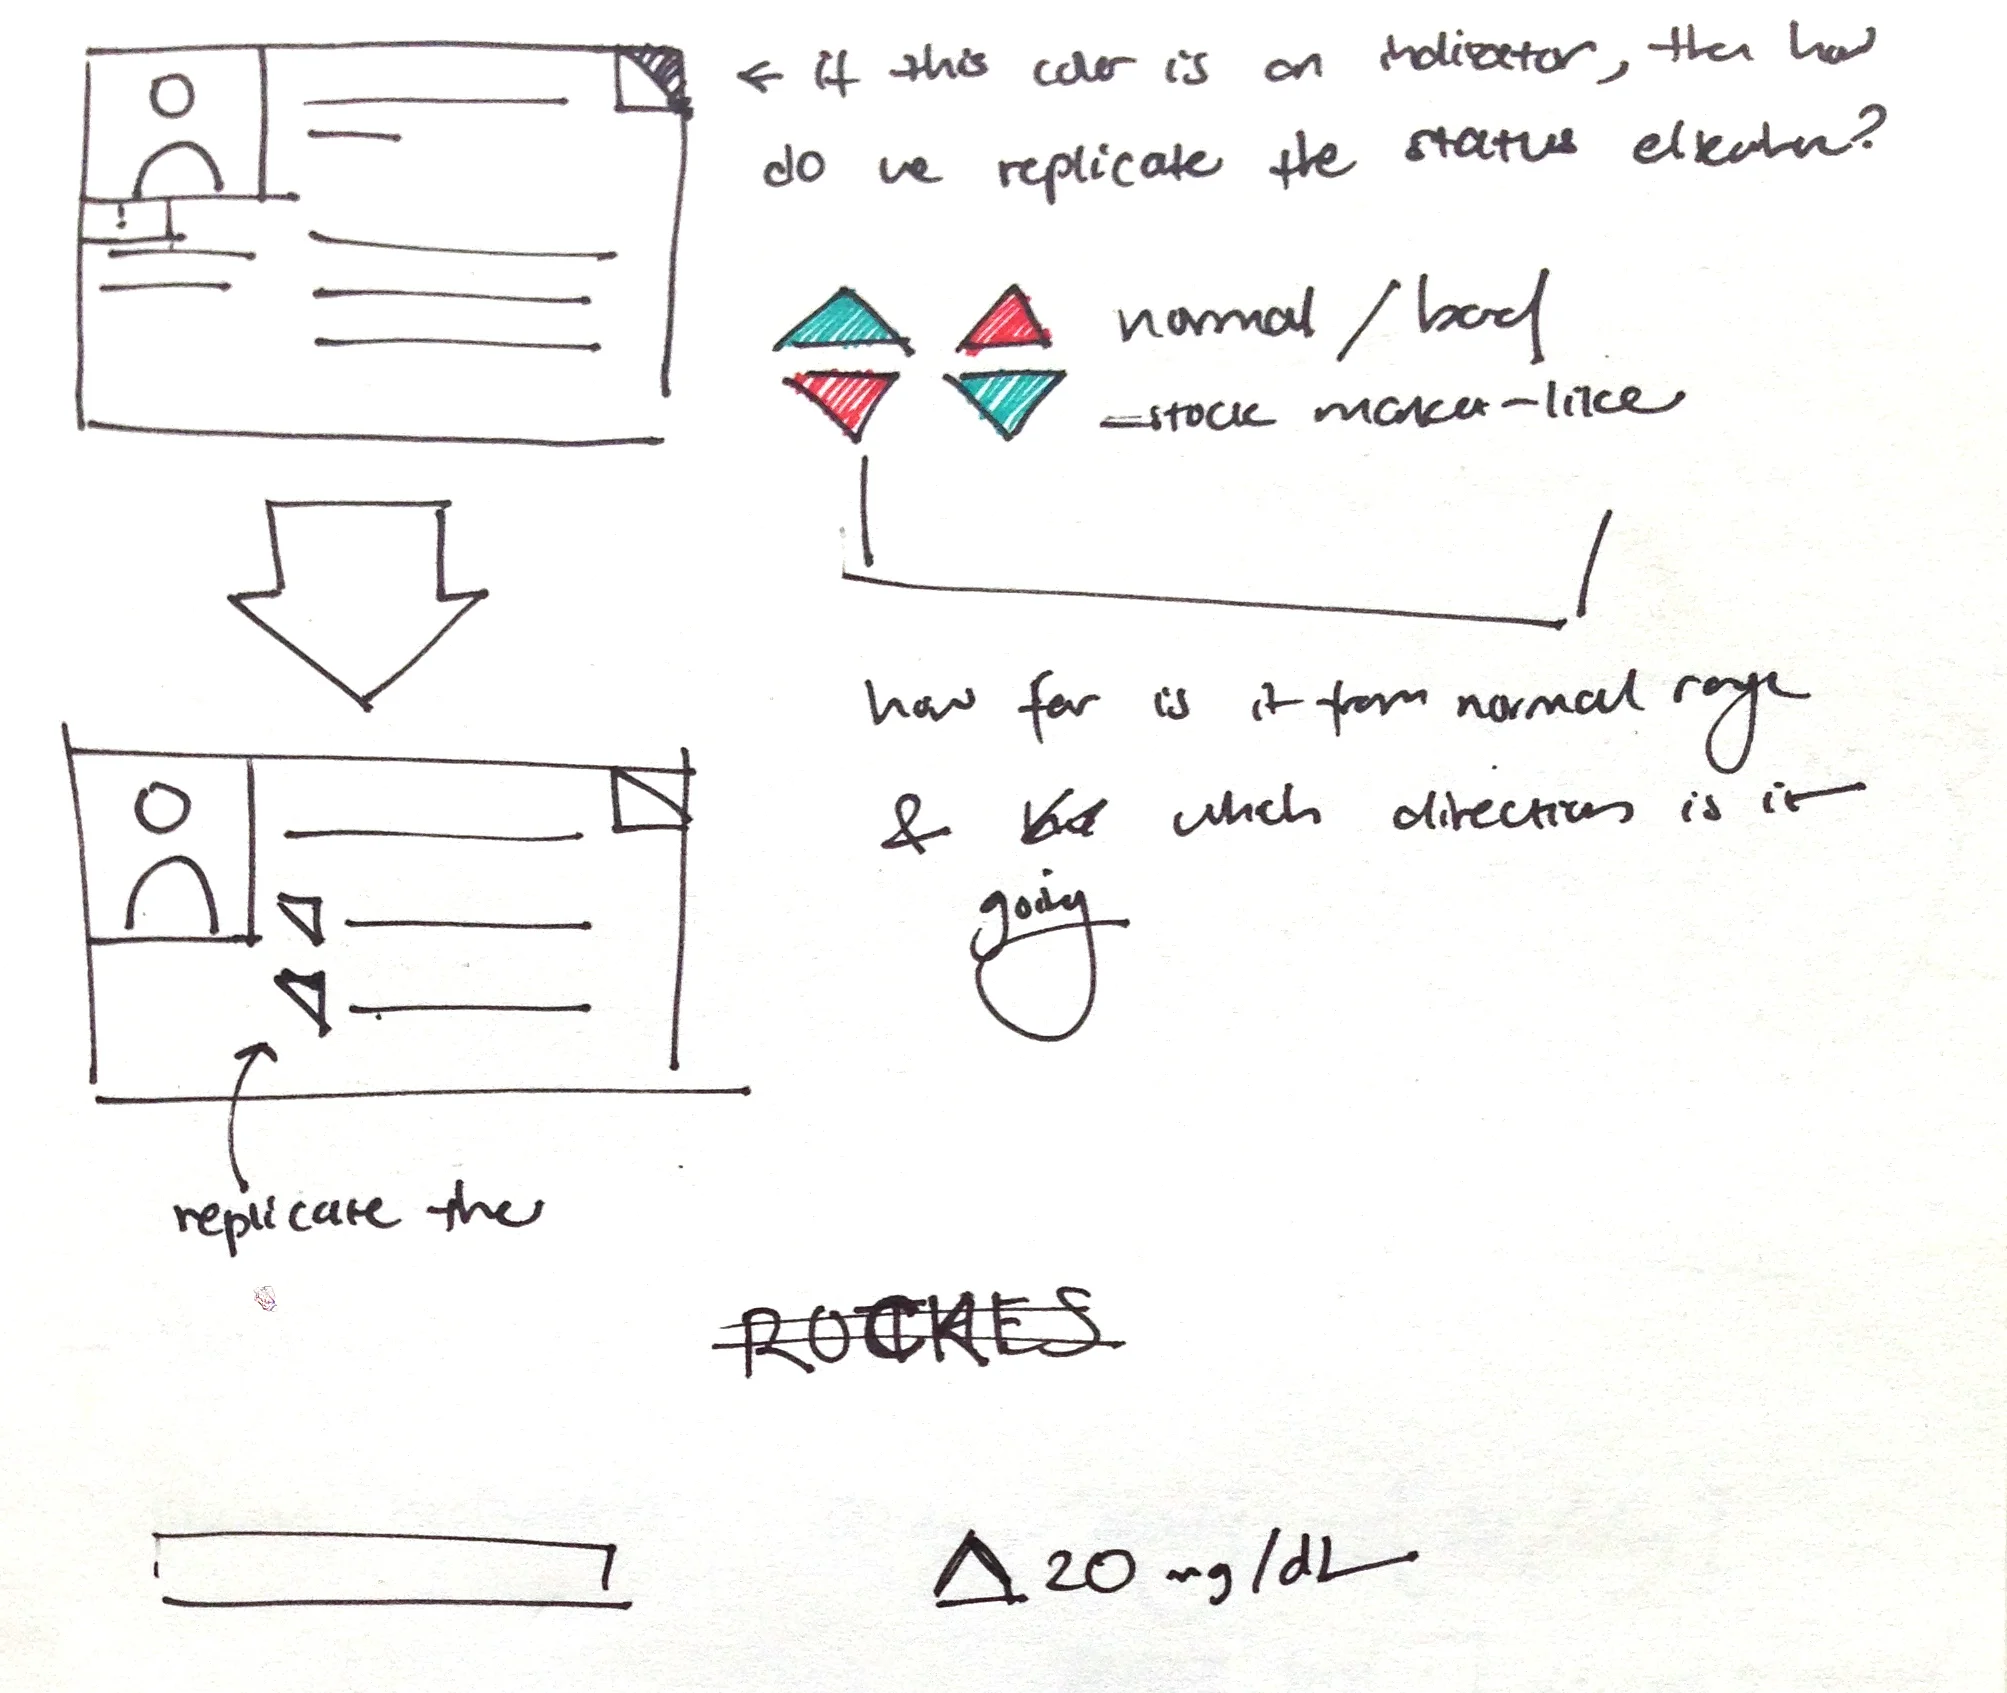 ← if this color is an indicator, then how
do we replicate the status elsewhere?
!
normal / bad
- stock market-like
how far is it from normal range
& which direction is it
going
replicate the
ROCKES
Δ 20 mg/dL